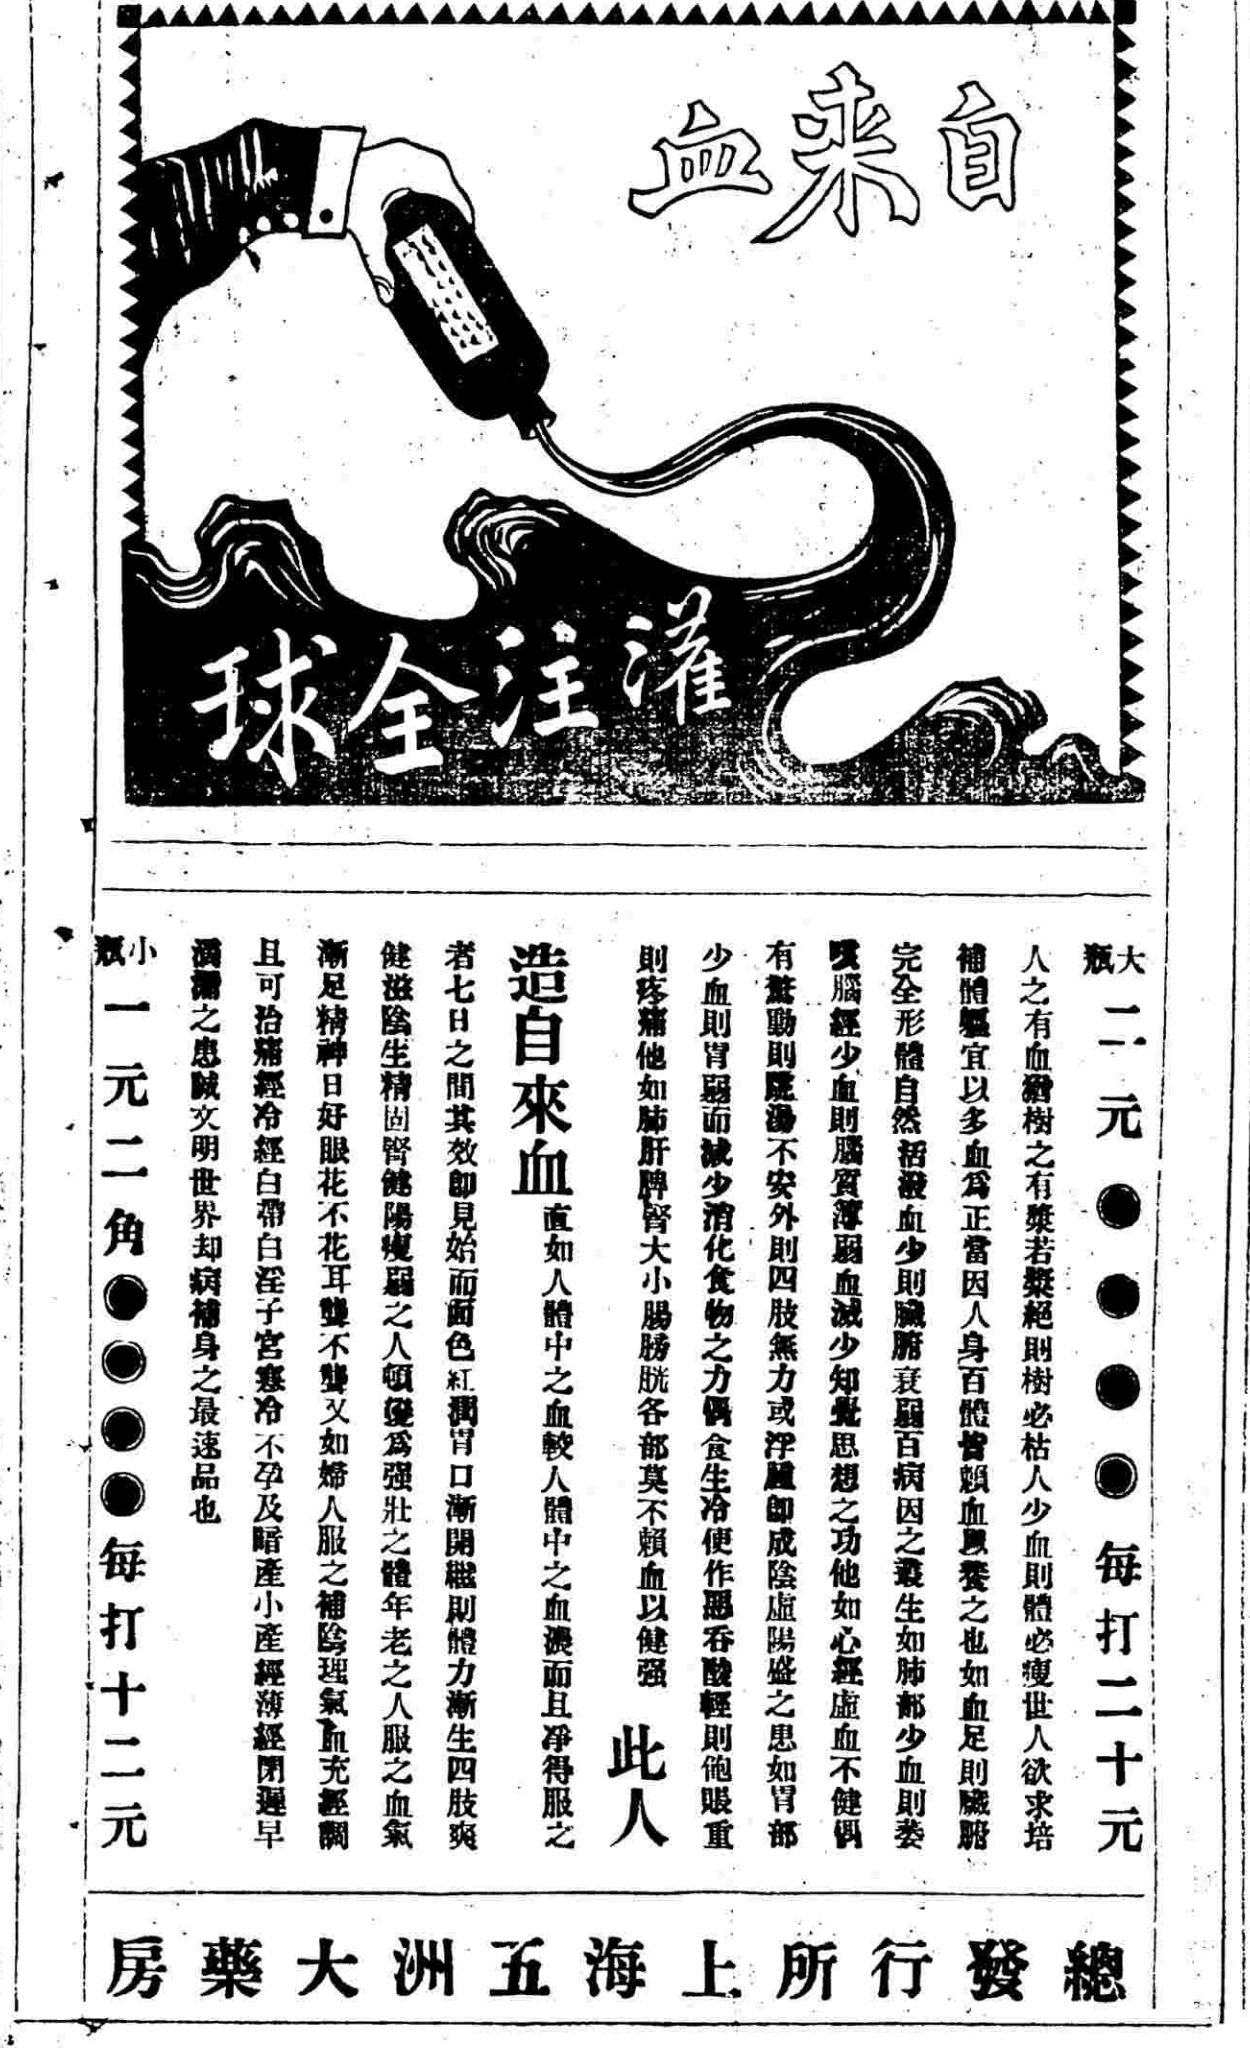 自來血
灌注全球
大瓶二元●●●●每打二十元
人之有血猶樹之有漿若漿絕則樹必枯人少血則體必瘦世人欲求培
補體軀宜以多血為正當因人身百體皆賴血以養之也如血足則臟腑
完全形體自然活潑血少則臟腑衰弱百病因之叢生如肺部少血則萎
咳腦經少血則腦質薄弱血減少知覺思想之功他如心經虛血不健偶
有驚動則跳湯不安外則四肢無力或浮腫即成陰虛陽盛之患如胃部
少血則胃弱而減少消化食物之力偶食生冷便作惡吞酸輕則飽脹重
則疼痛他如肺肝脾腎大小腸膀胱各部莫不賴血以健强 此人
造自來血直如人體中之血較人體中之血濃而且净得服之
者七日之間其效卽見始而面色紅潤胃口漸開繼則體力漸生四肢爽
健滋陰生精固腎健陽瘦弱之人頓變為强壯之體年老之人服之血氣
漸足精神日好眼花不花耳聾不聾又如婦人服之補陰理氣血充經調
且可治痛經冷經白帶白淫子宮寒冷不孕及暗產小產經薄經閉遲早
之患誠文明世界却病補身之最速品也
小瓶一元二角●●●●每打十二元
總發行所上海五洲大藥房